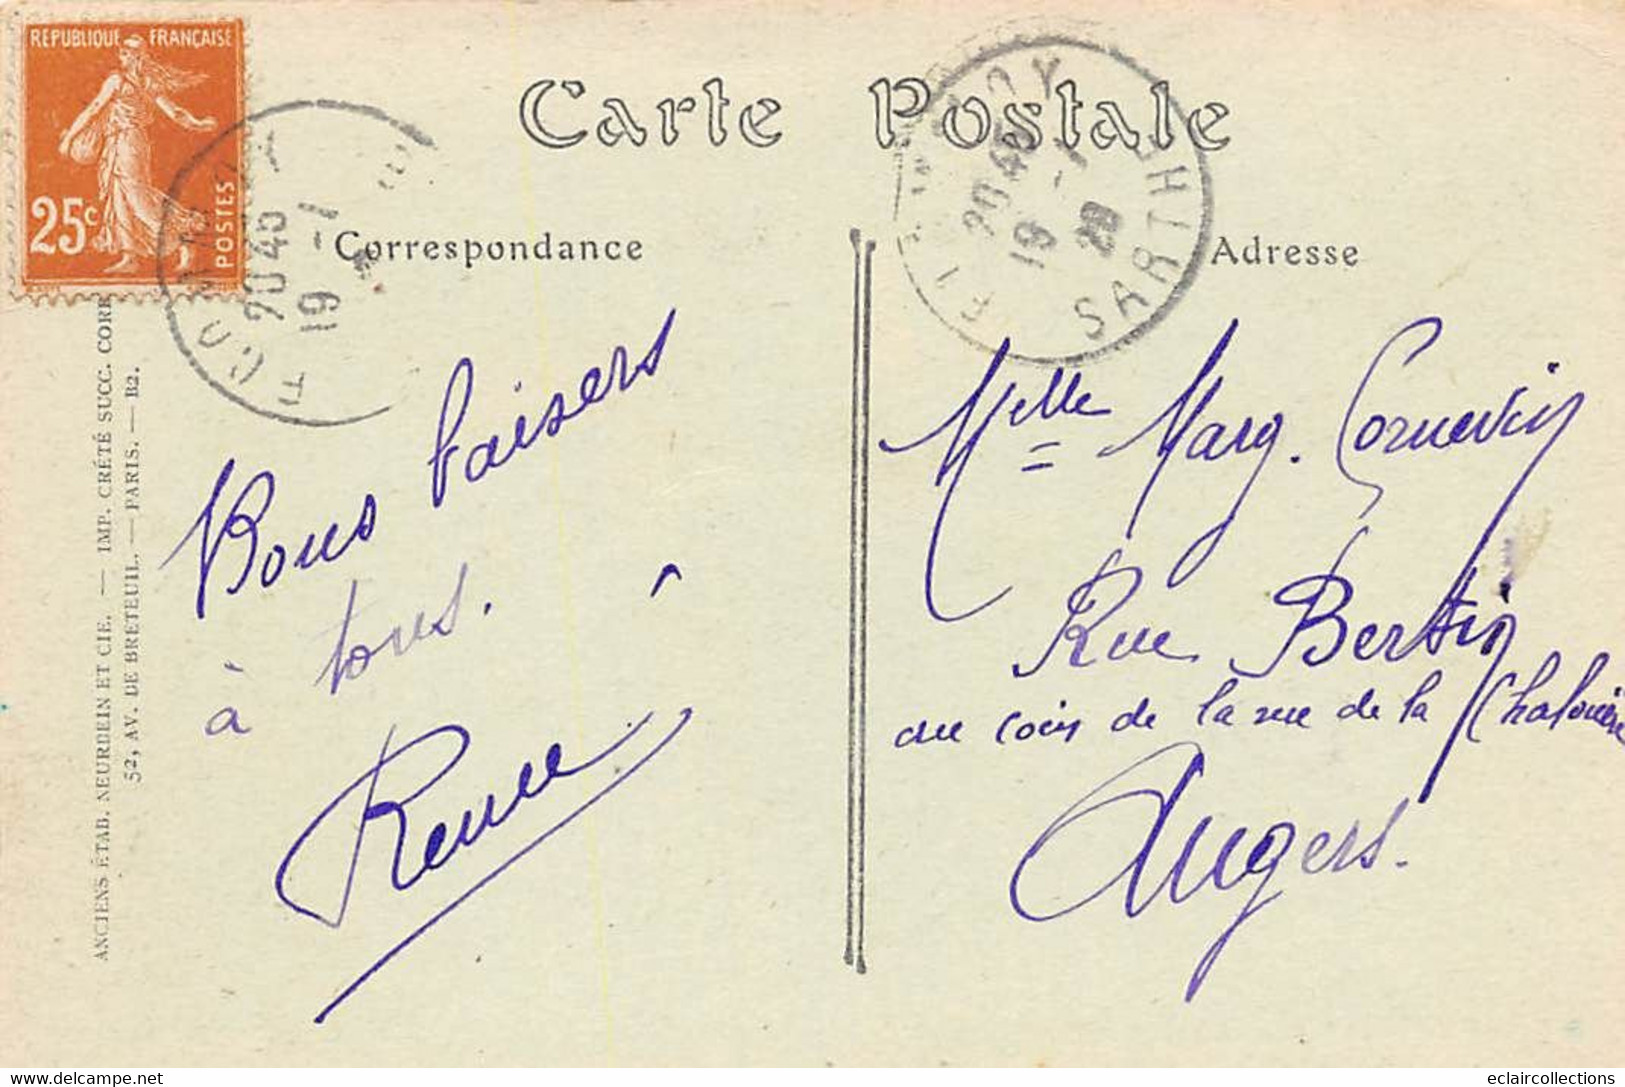 REPUBLIQUE FRANÇAISE
25c
POSTES
Carte Postale
20 45
19 - 1
20 45
19 - 1
29
SARTHE
Correspondance
Adresse
Bons baisers
à tous.
Renée
Melle Marg. Cornevin
Rue Bertin
au coin de la rue de la Chalouère
Angers.
ANCIENS ÉTAB. NEURDEIN ET CIE. — IMP. CRÉTÉ SUCC. CORB
52, AV. DE BRETEUIL. — PARIS. — B2.
eclaircollections sur Delcampe.net
eclaircollections